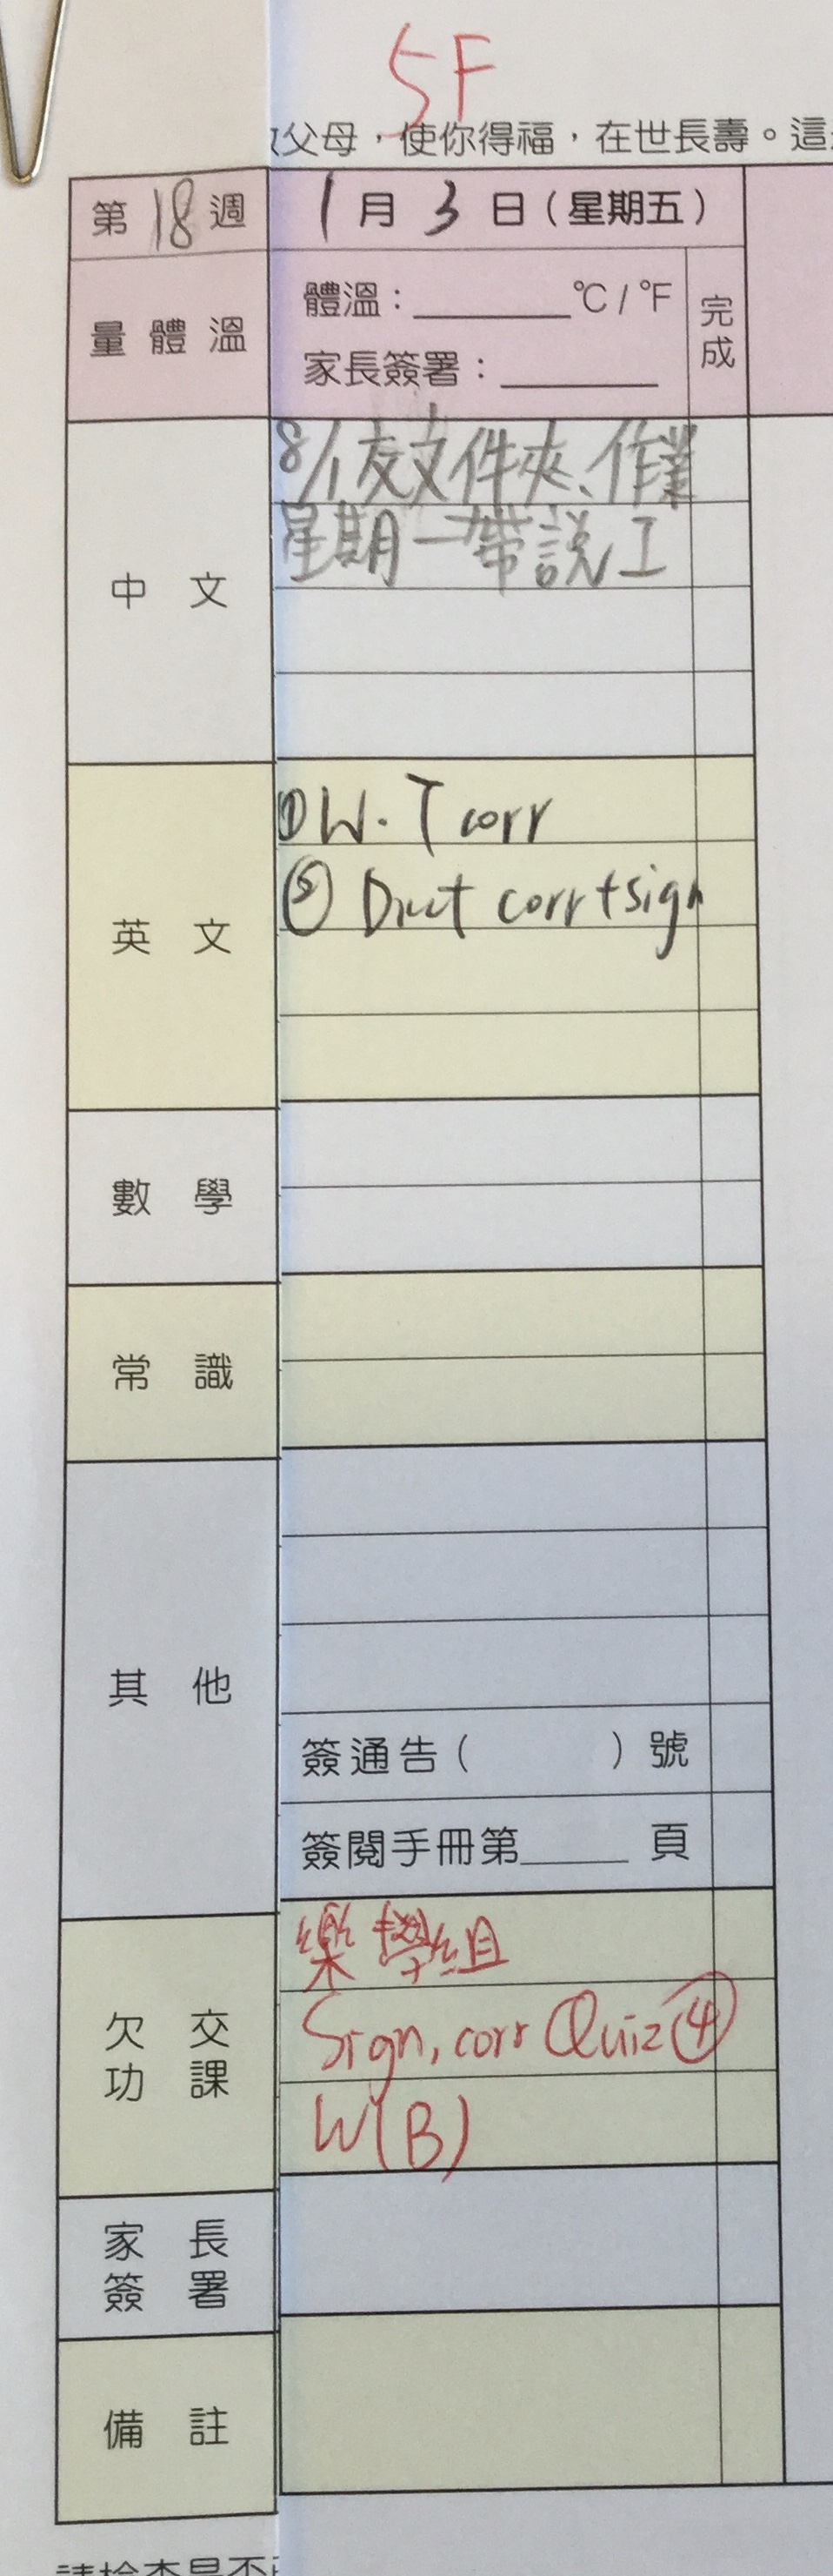 5F
父母，使你得福，在世長壽。這
第18週 1月3日（星期五）
量體溫 體溫：______℃/℉ 完成
家長簽署：______
中文 8/1交文件夾、作業
星期一帶說工
英文 ①W.T corr
② Dict corr+sign
數學
常識
其他
簽通告（ ）號
簽閱手冊第____頁
欠交功課 樂學組
Sign, corr Quiz④
W(B)
家長簽署
備註
請檢查是否